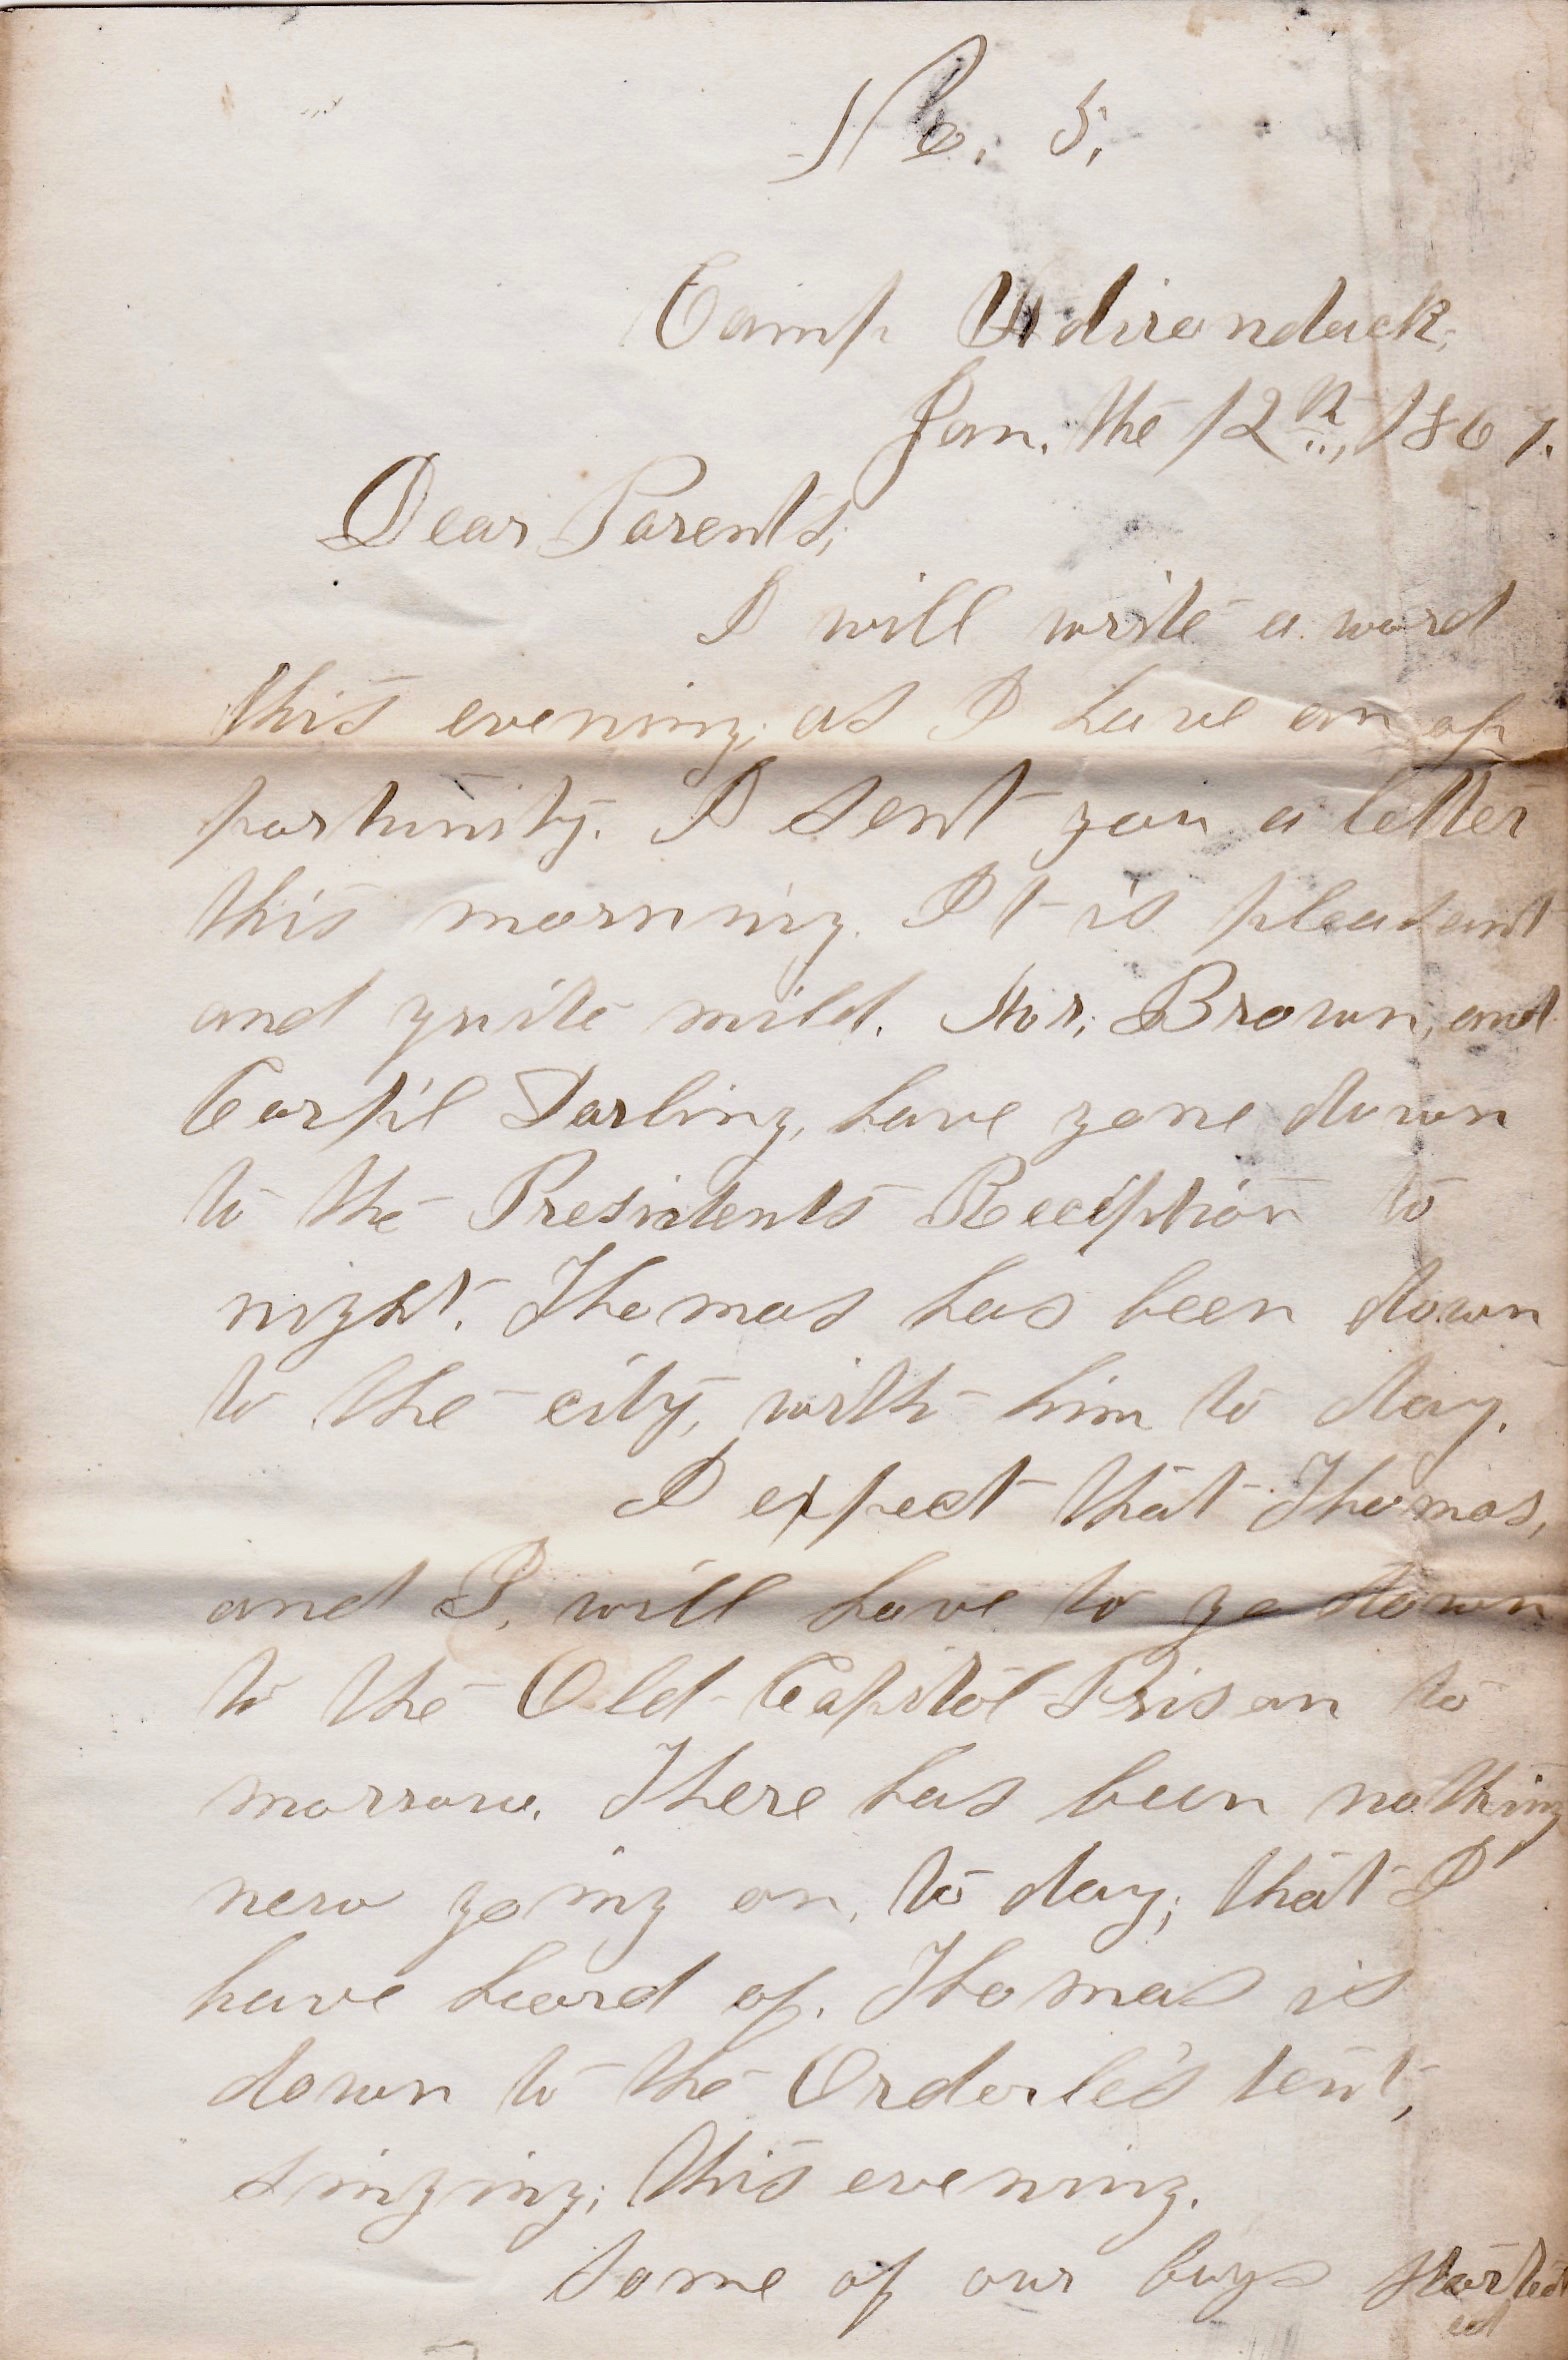 No. 5.
Camp Adirondack,
Jan. the 12th, 1867.
Dear Parents,
I will write a word
this evening, as I have an op
portunity. I sent you a letter
this morning. It is pleasant
and quite mild. Mr. Brown, and
Corp'l Darling, have gone down
to the Presidents Reception to
night. Thomas has been down
to the city, with him to day.
I expect that Thomas,
and I, will have to go down
to the Old Capitol Prison to
morrow. There has been nothing
new going on, to day; that I
have heard of. Thomas is
down to the Orderle's tent,
singing; this evening.
Some of our boys started
ed